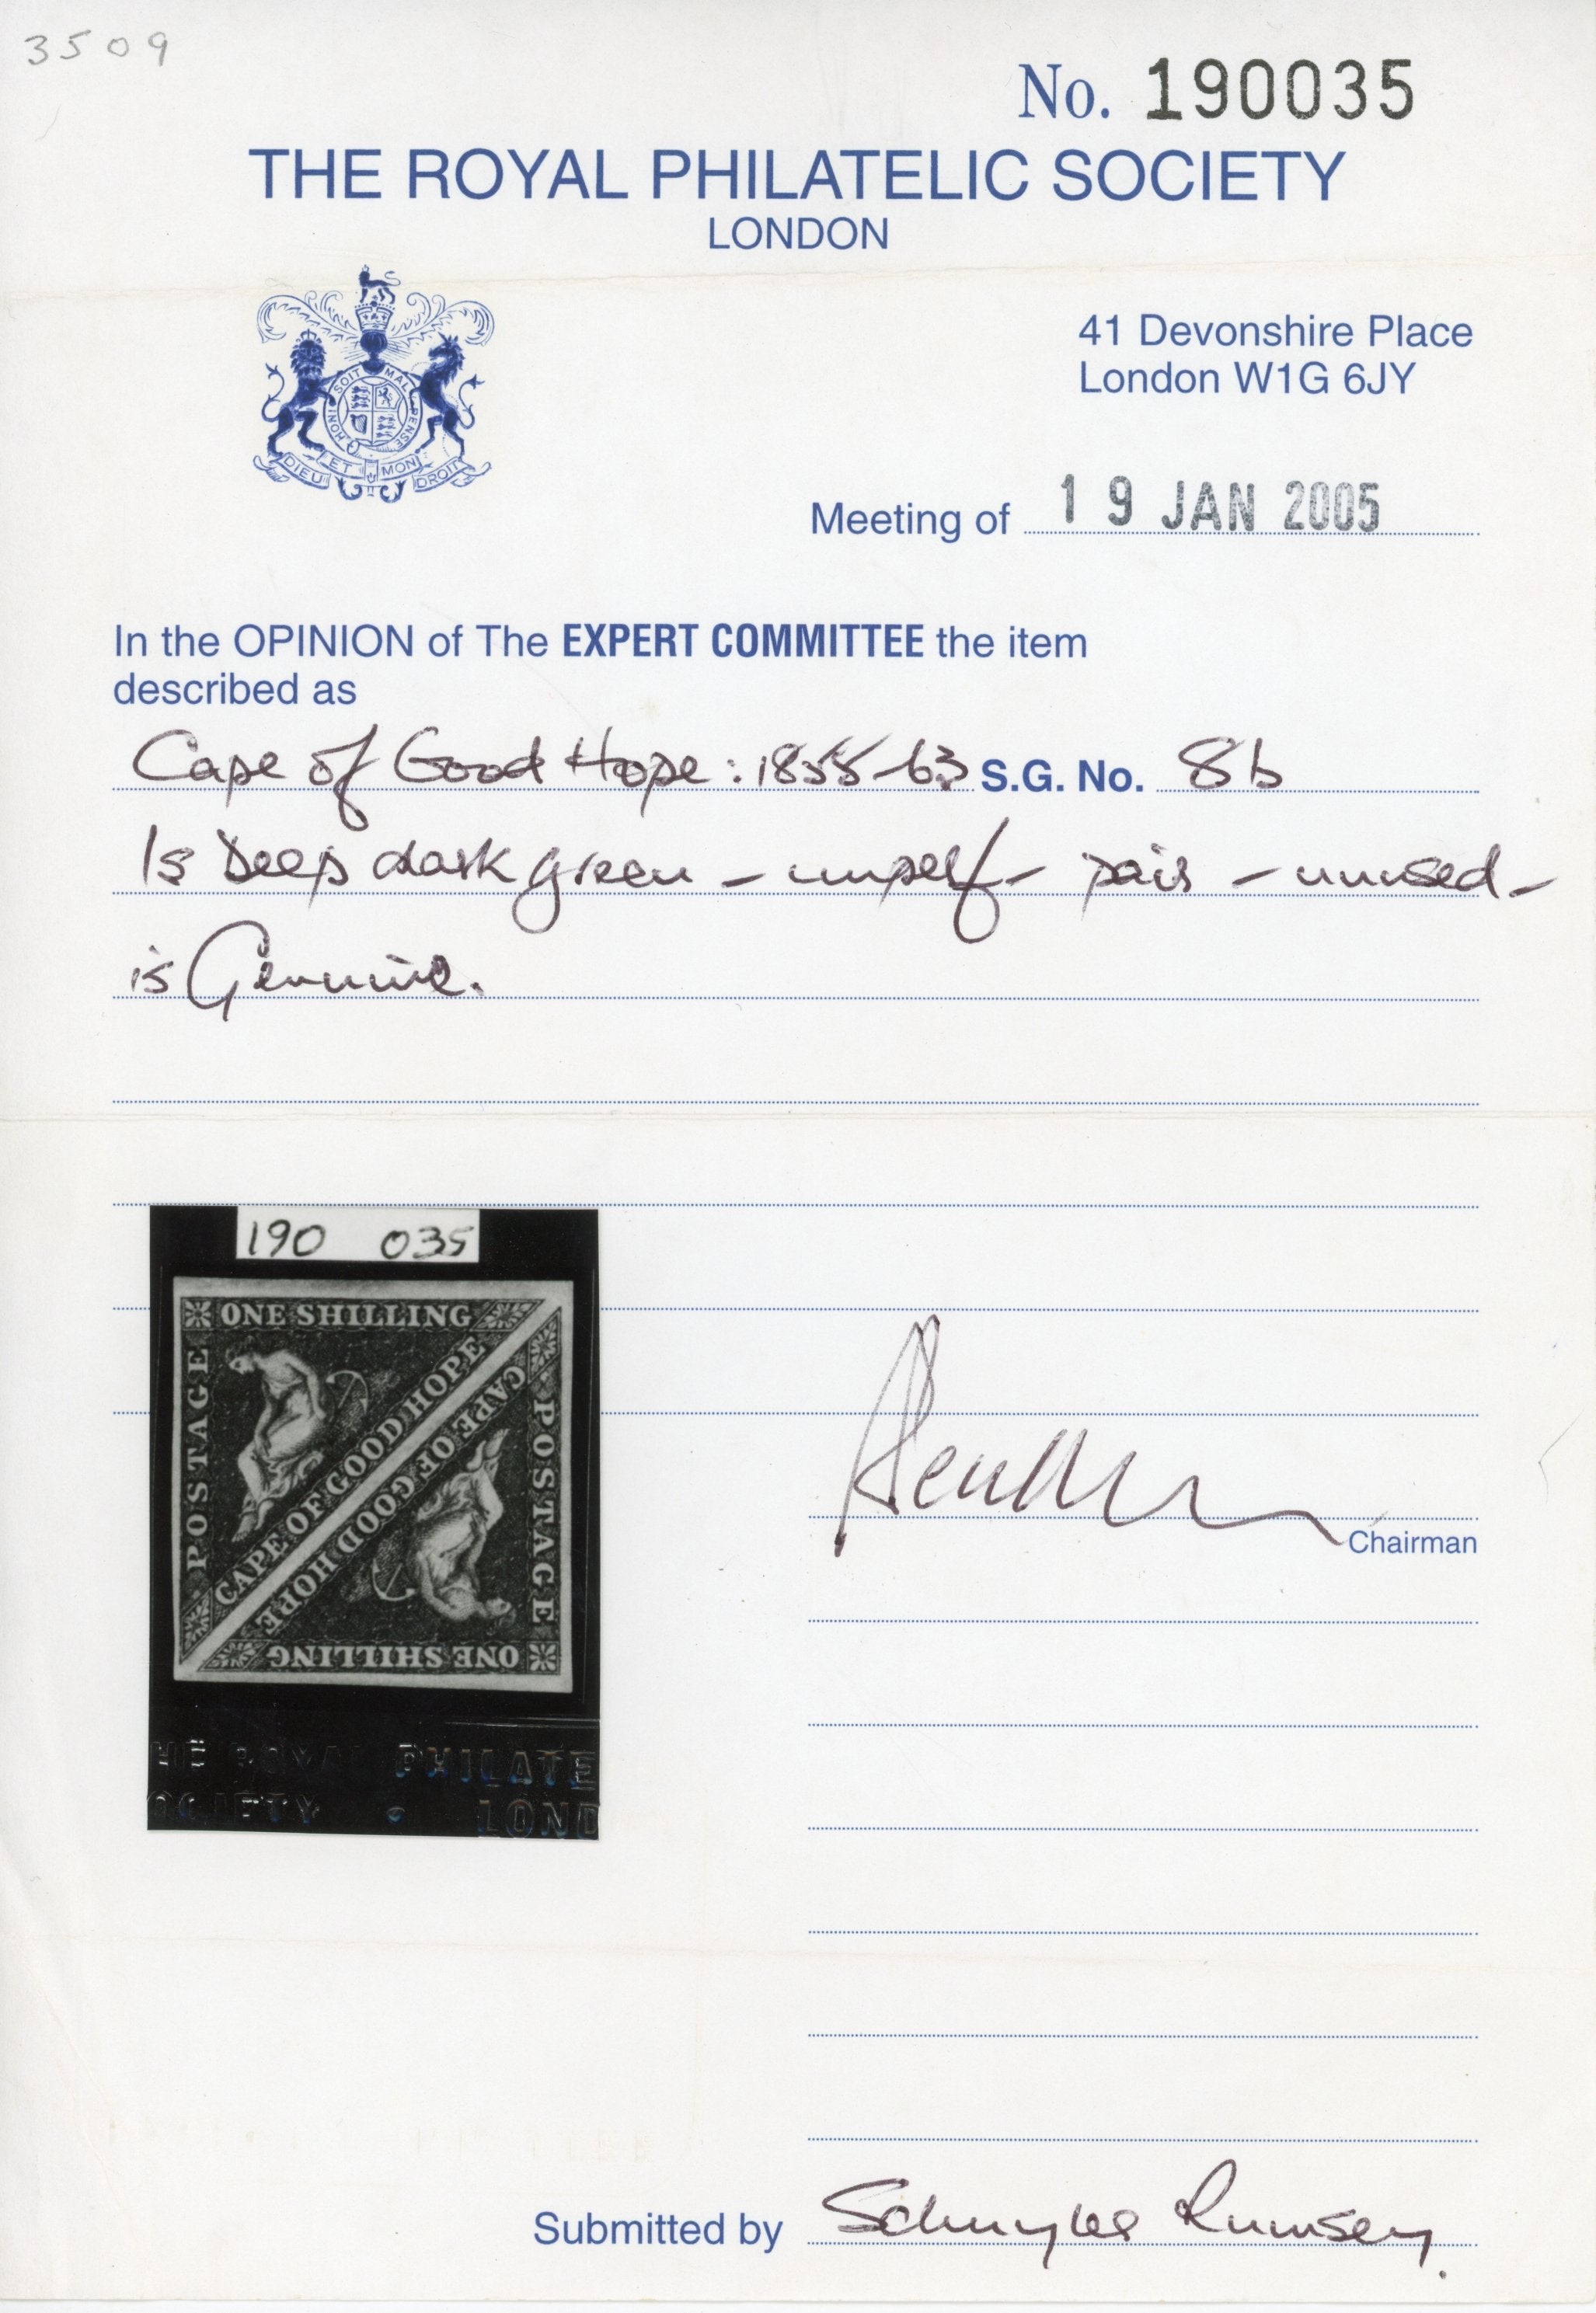 3509
No. 190035
THE ROYAL PHILATELIC SOCIETY
LONDON
41 Devonshire Place
London W1G 6JY
SOIT MAL PENSE HONI
DIEU ET MON DROIT
Meeting of 19 JAN 2005
In the OPINION of The EXPERT COMMITTEE the item
described as
Cape of Good Hope: 1855-63 S.G. No. 8b
1s Deep dark green - imperf - pair - unused -
is Genuine.
190 035
ONE SHILLING
POSTAGE
CAPE OF GOOD HOPE
CAPE OF GOOD HOPE
POSTAGE
ONE SHILLING
HE ROYAL PHILATE
OCIETY • LOND
Chairman
Submitted by Schuyler Rumsey.